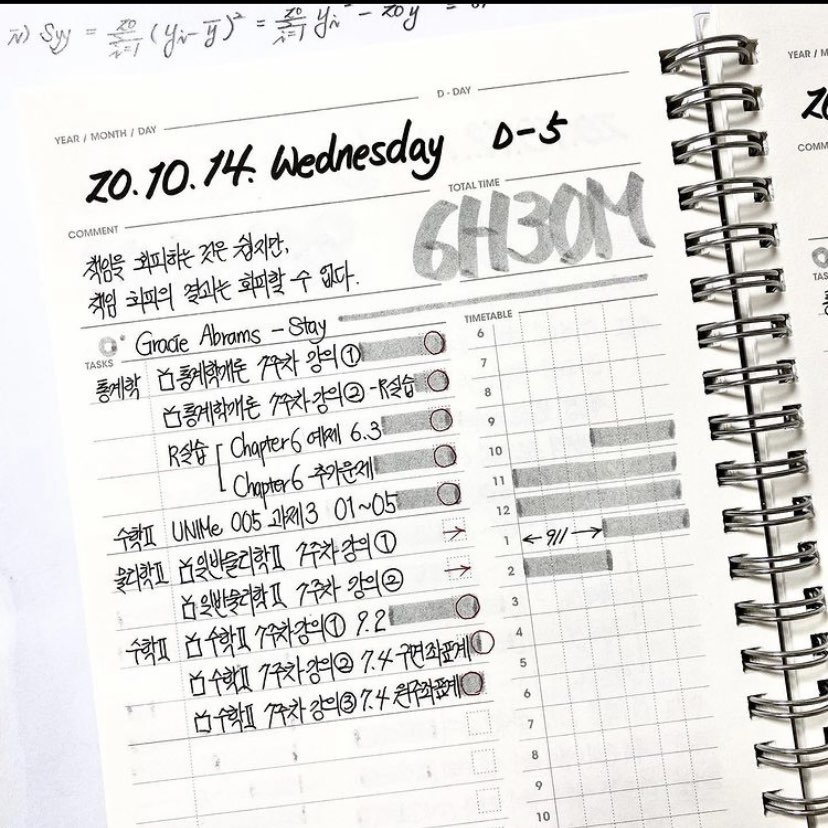 ㅈ) Syy = Σ(yi-ȳ)² = Σyi² - 20y
YEAR / MONTH / DAY
D - DAY
20.10.14. Wednesday D-5
COMMENT
TOTAL TIME
6H30M
책임을 회피하는 것은 쉽지만,
책임 회피의 결과는 회피할 수 없다.
Gracie Abrams - Stay
TASKS
통계학 통계학개론 7주차 강의①
통계학개론 7주차 강의② -R실습
R실습 Chapter6 예제 6.3
Chapter6 추가문제
수학Ⅱ UNIMe 005 과제3 01~05
물리학Ⅱ 일반물리학Ⅱ 7주차 강의①
일반물리학Ⅱ 7주차 강의②
수학Ⅱ 수학Ⅱ 7주차 강의① 9.2
수학Ⅱ 7주차 강의② 7.4 구면좌표계
수학Ⅱ 7주차 강의③ 7.4 원주좌표계
TIMETABLE
6
7
8
9
10
11
12
1 ← 911 →
2
3
4
5
6
7
8
9
10
YEAR / M
20
COMM
TAS